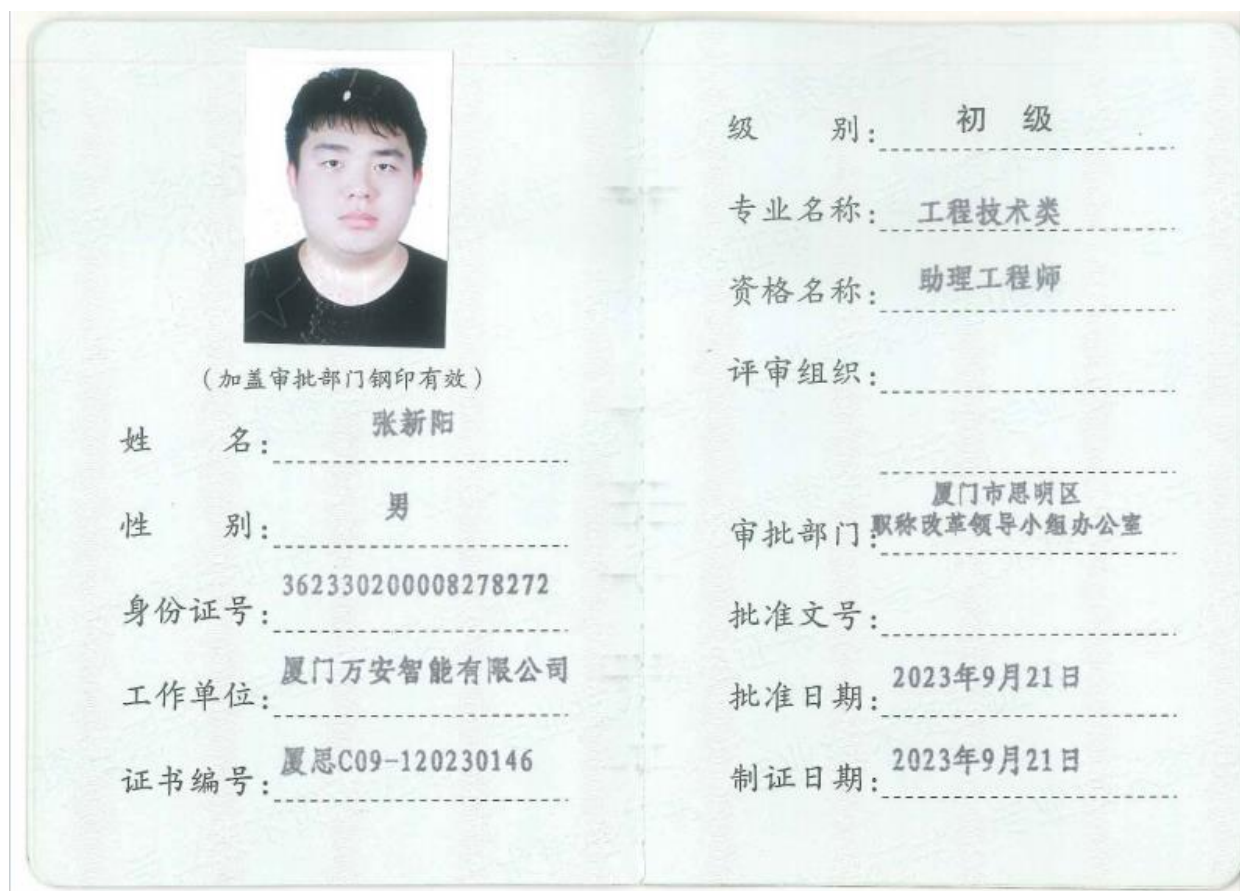 (加盖审批部门钢印有效)
姓 名: 张新阳
性 别: 男
身份证号: 362330200008278272
工作单位: 厦门万安智能有限公司
证书编号: 厦思C09-120230146
级 别: 初 级
专业名称: 工程技术类
资格名称: 助理工程师
评审组织:
厦门市思明区
审批部门: 职称改革领导小组办公室
批准文号:
批准日期: 2023年9月21日
制证日期: 2023年9月21日